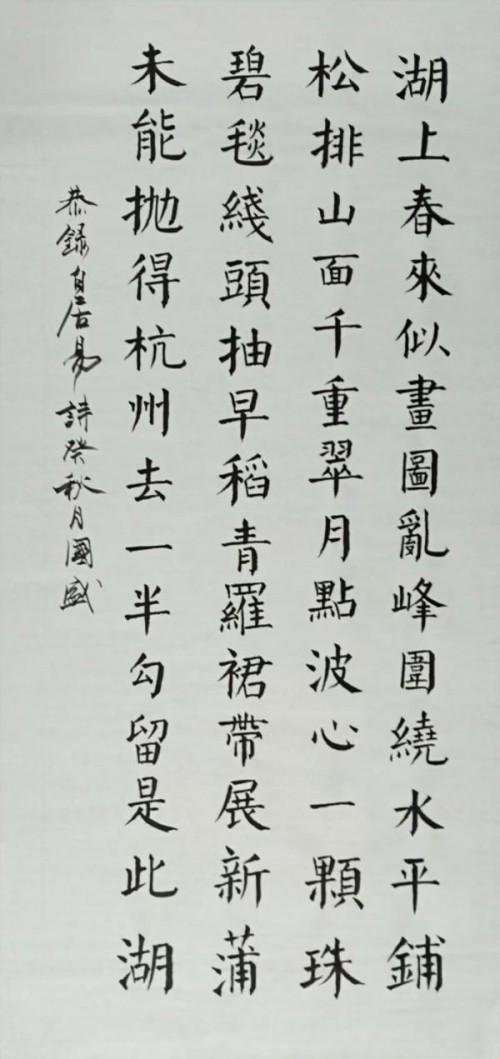 湖上春來似畫圖亂峰圍繞水平鋪
松排山面千重翠月點波心一顆珠
碧毯綫頭抽早稻青羅裙帶展新蒲
未能抛得杭州去一半勾留是此湖
恭錄白居易詩癸秋月國盛